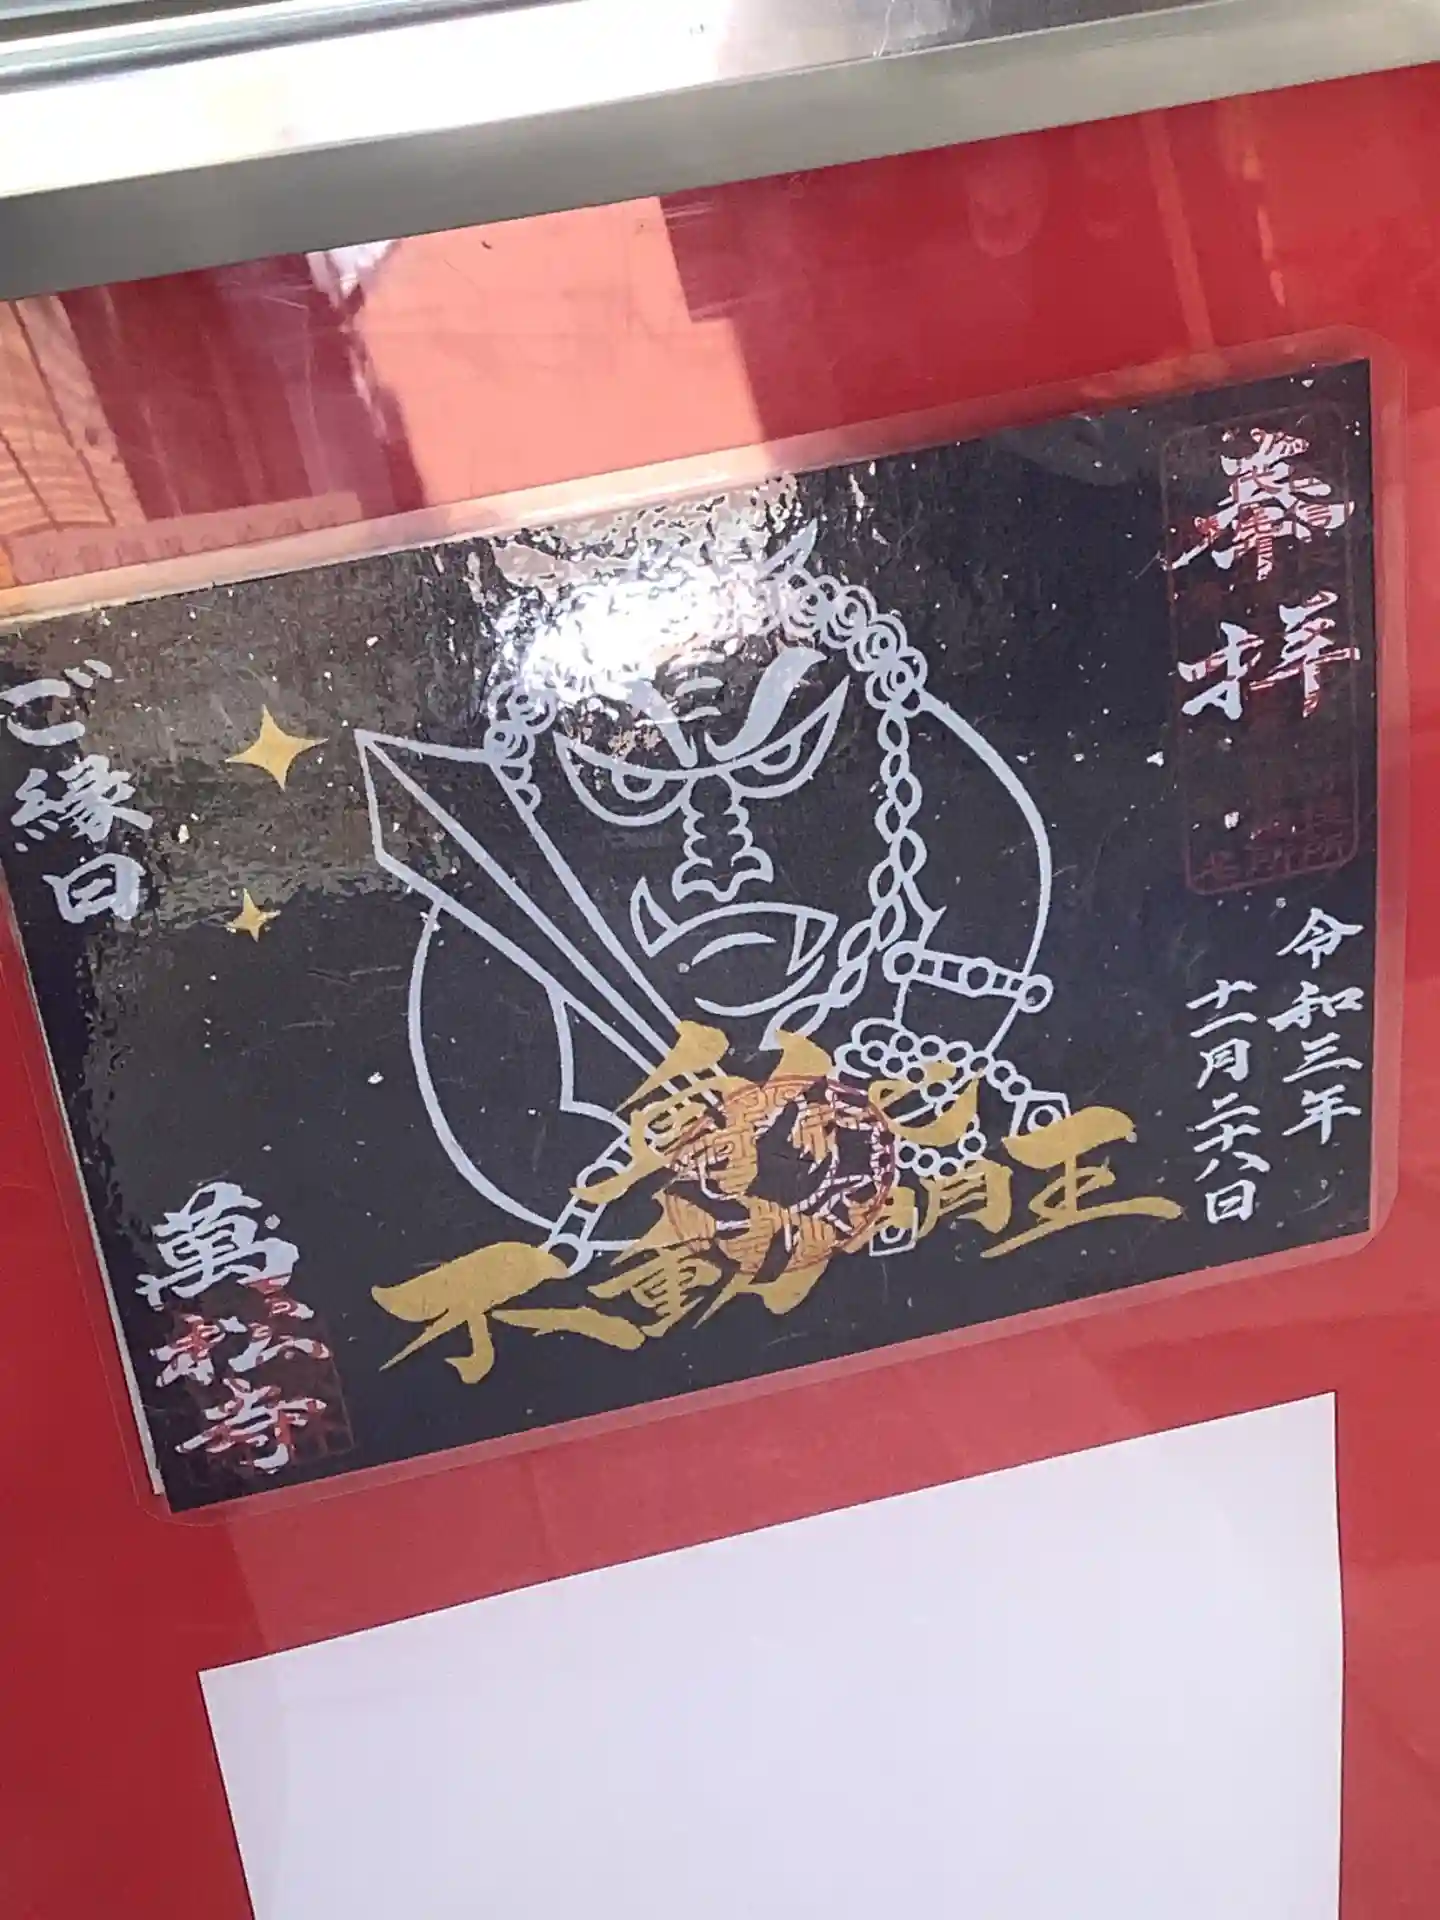 奉拝
令和三年
十一月二十八日
不動明王
ご縁日
萬松寺